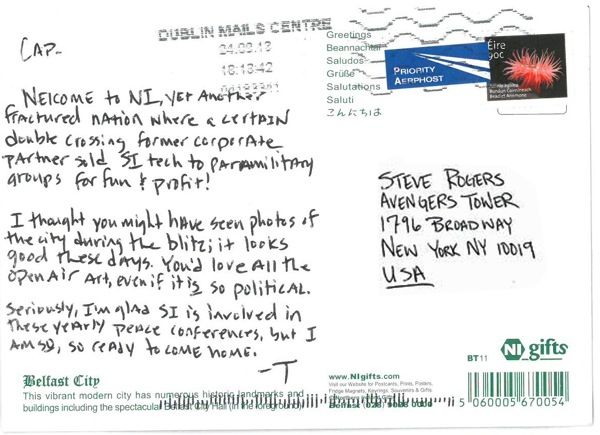 DUBLIN MAILS CENTRE
24.09.13
18:18:42
CAP-
WELCOME to NI, yet ANOTHER
fractured NATION WHERE A CERTAIN
double crossing former corporate
partner sold SI tech to paramilitary
groups for fun & profit!
I thought you might HAVE seen photos of
the city during the blitz; it looks
good these days. You'd love All the
OPEN AIR Art, even if it is so political.
Seriously, I'm glad SI is involved in
these yearly peace conferences, but I
AM SO, so ready to come home.
-T
Belfast City
This vibrant modern city has numerous historic landmarks and
buildings including the spectacular Belfast City Hall (in the foreground)
Greetings
Beannachtaí
Saludos
Grüße
Salutations
Saluti
こんにちは
PRIORITY
AERPHOST
Éire
90c
STEVE ROGERS
AVENGERS TOWER
1796 BROADWAY
NEW YORK NY 10019
USA
BT11
NI gifts
www.NIgifts.com
Visit our Website for Postcards, Prints, Posters,
Fridge Magnets, Keyrings, Souvenirs & Gifts
Belfast (028)
5 060005 670054